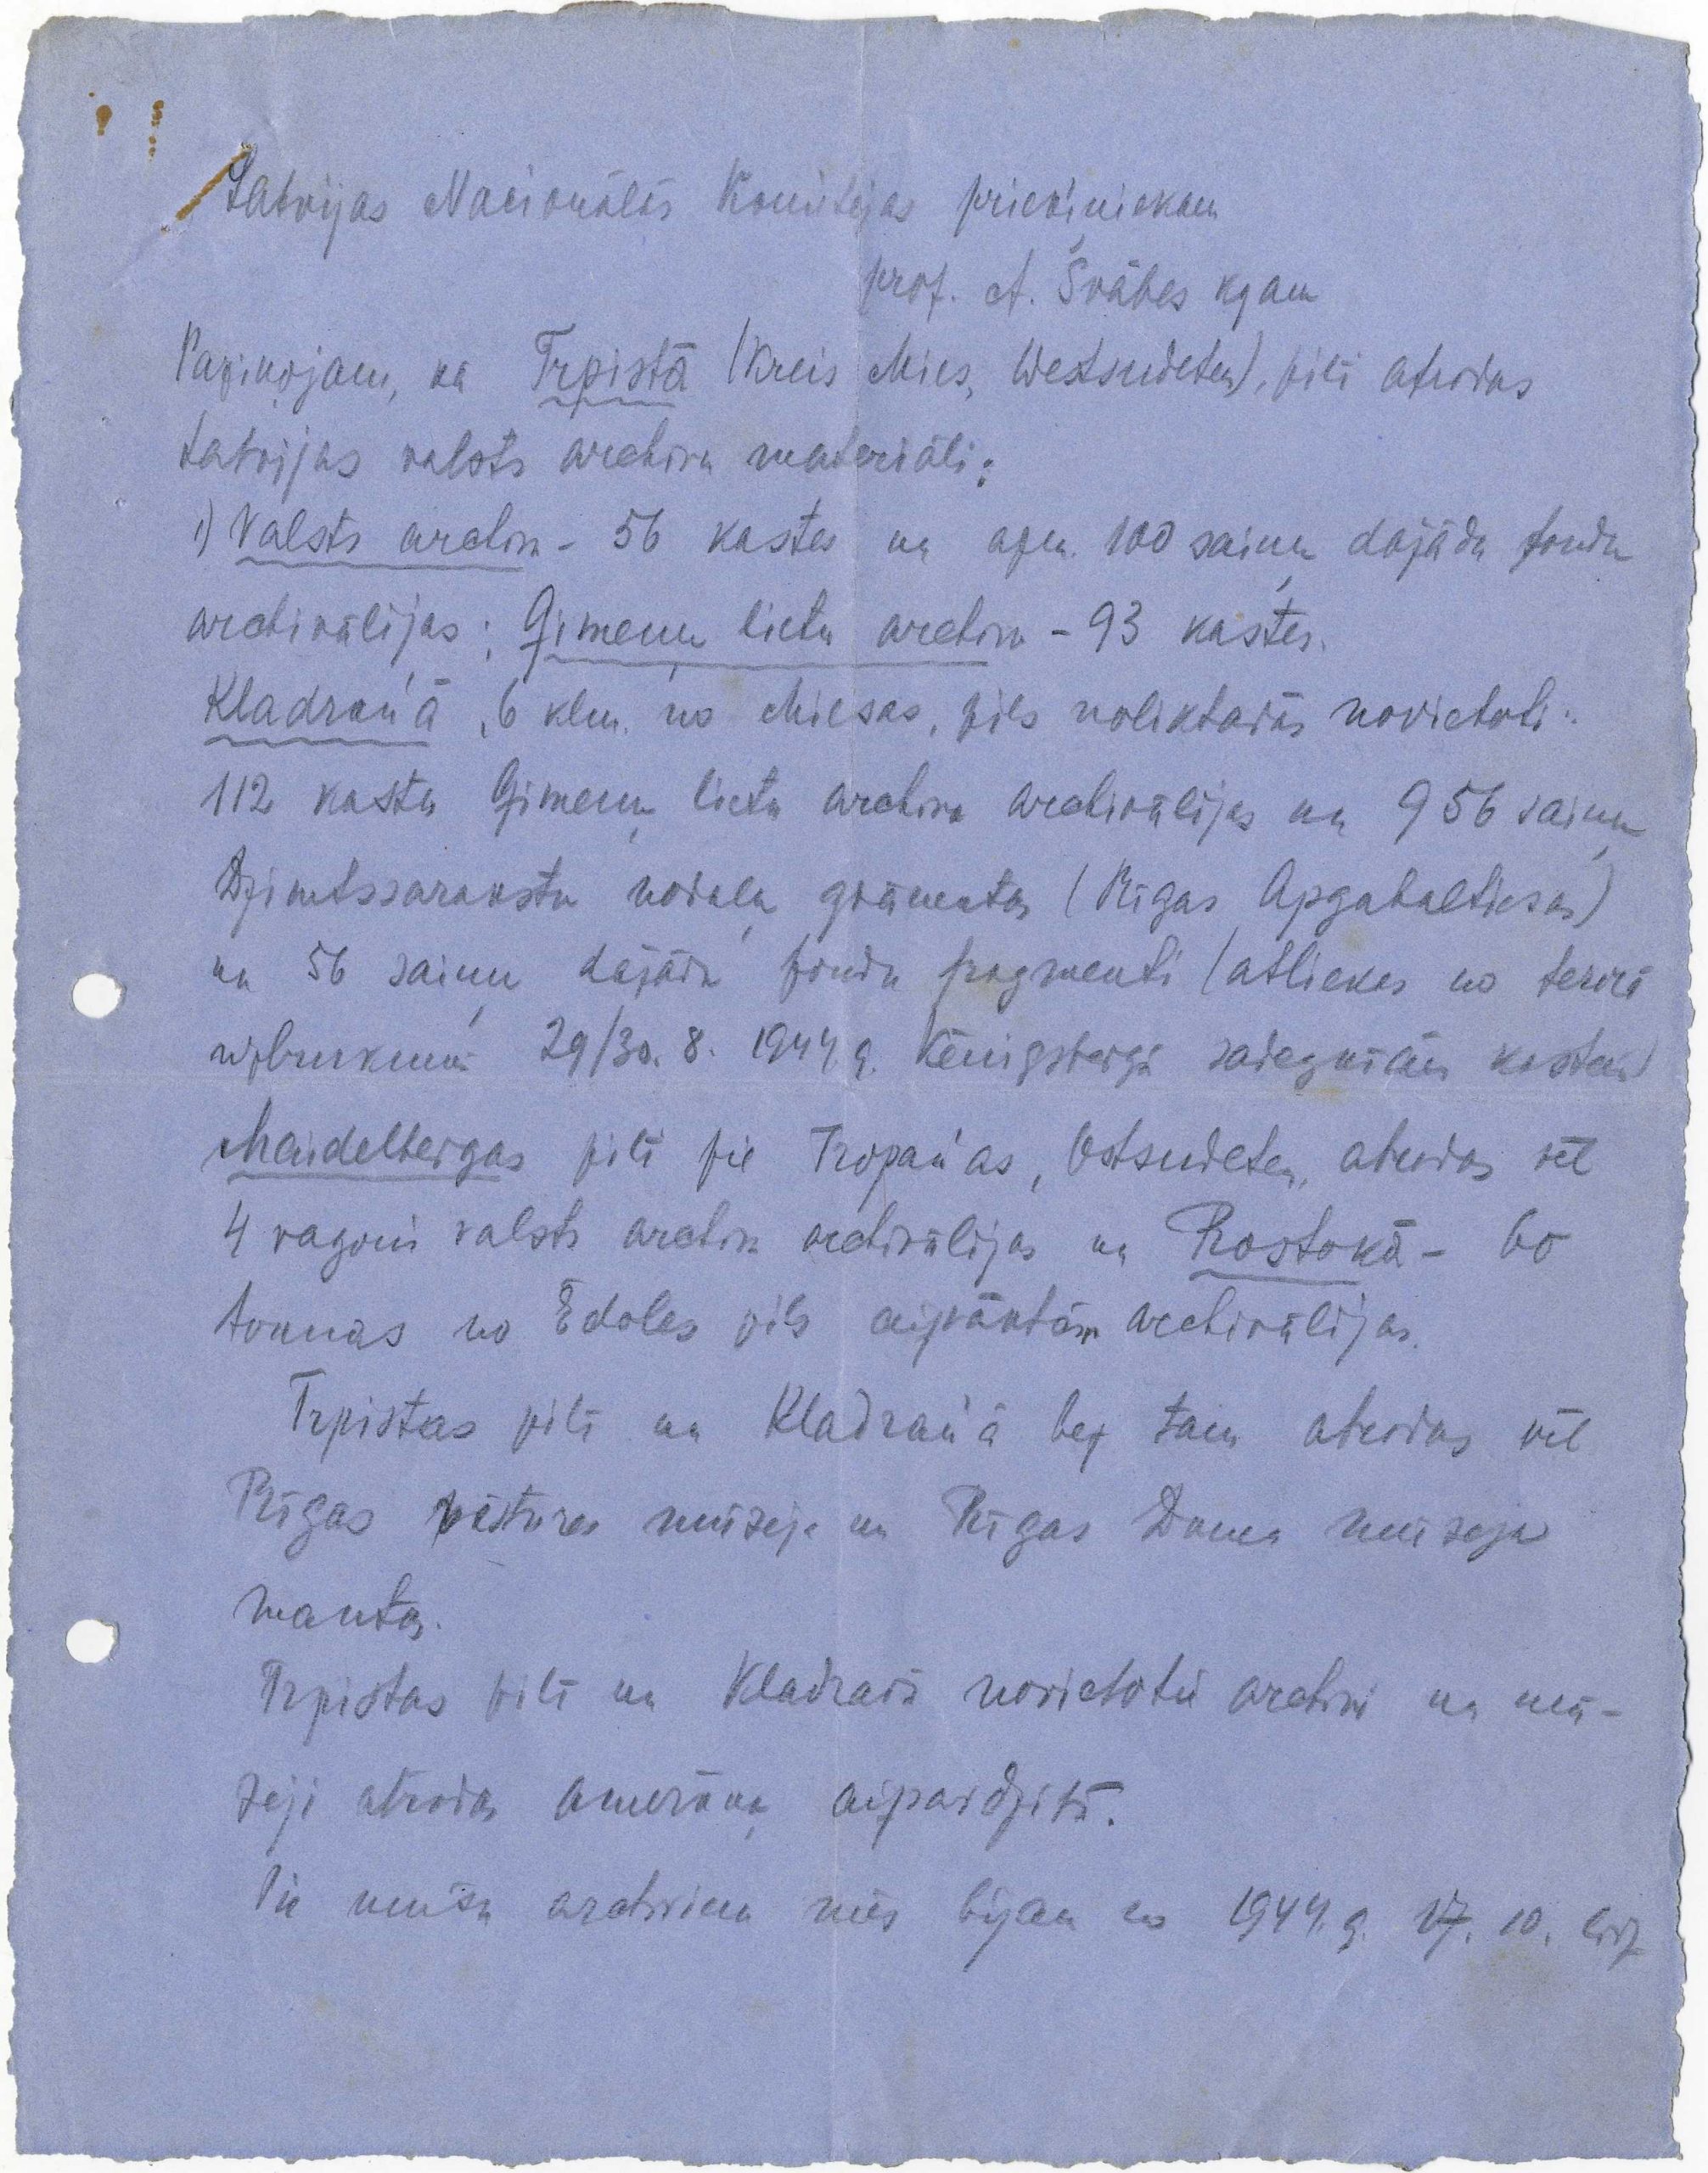 Latvijas Nacionālās Komitejas priekšniekam
prof. A. Švābes kgam
Paziņojam, ka Trpistā (Kreis Mies, Westsudeten), pilī atrodas
Latvijas valsts archīvu materiāli:
1) Valsts archīva - 56 kastes un apm. 100 saiņu dažādu fondu
archivālijas; Ģimeņu lietu archīva - 93 kastes.
Kladrau'ā, 6 klm. no Miesas, pils noliktavās novietoti:
112 kastu Ģimeņu lietu archīva archivālijas un 956 saiņu
Dzimtssarakstu nodaļu grāmatas (Rīgas Apgabaltiesas)
un 56 saiņu dažādu fondu fragmenti (atliekas no terora
uzbrukumā 29/30. 8. 1944. g. Kēnigsbergā sadegušām kastēm)
Maidelbergas pilī pie Tropau'as, Ostsudeten, atrodas vēl
4 vagoni valsts archīva archivālijas un Rostokā - 60
tonnas no Ēdoles pils aizvāktām archivālijas.
Trpistas pilī un Kladrau'ā bez tam atrodas vēl
Rīgas vēstures mūzeja un Rīgas Doma mūzeja
mantas.
Trpistas pilī un Kladravā novietotie archīvi un mū-
zeji atrodas amerikāņu aizsardzībā.
Pie mūsu archīviem mēs bijām no 1944. g. 17. 10. līdz